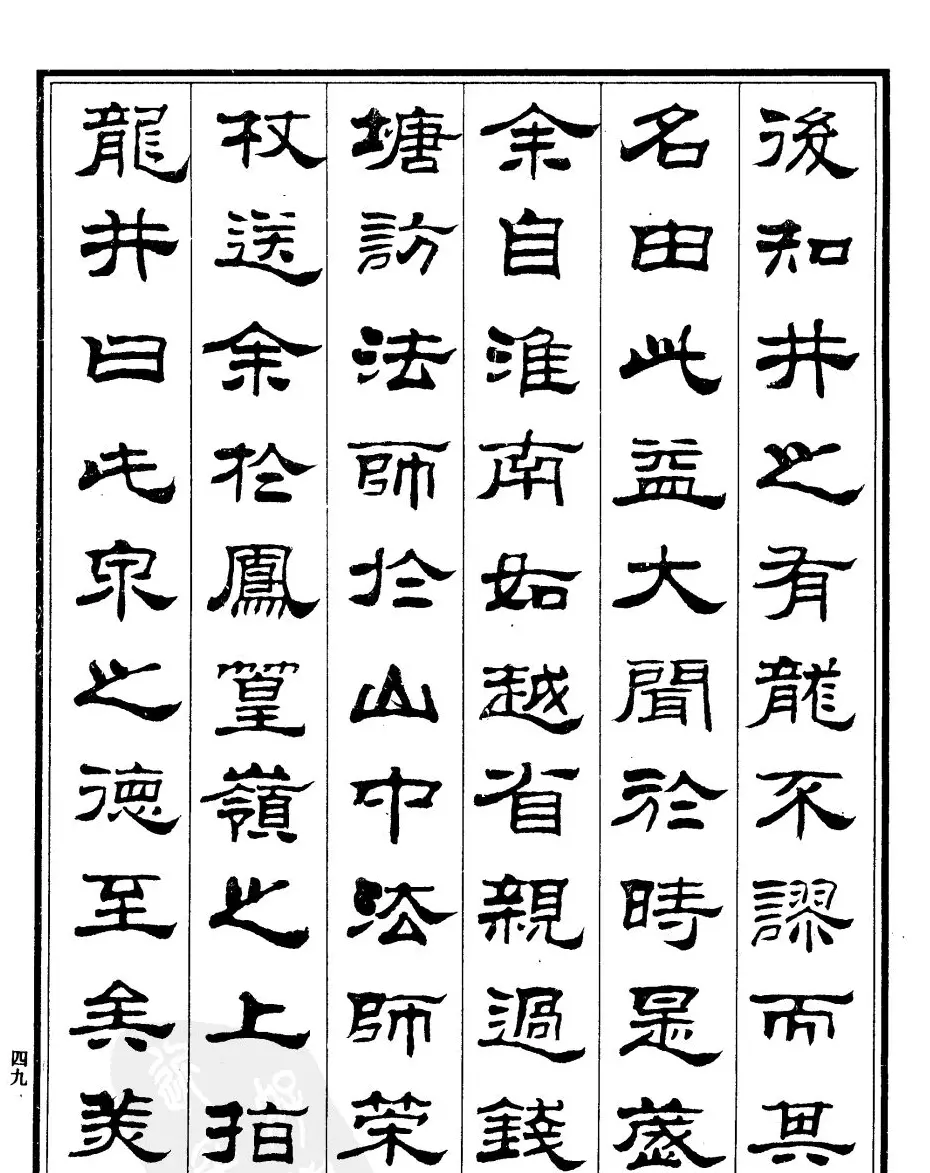 後知井之有龍不謬而其
名由此益大聞於時是歲
余自淮南如越省親過錢
塘訪法師於山中法師策
杖送余於鳳篁嶺之上指
龍井曰此泉之德至矣美
四九